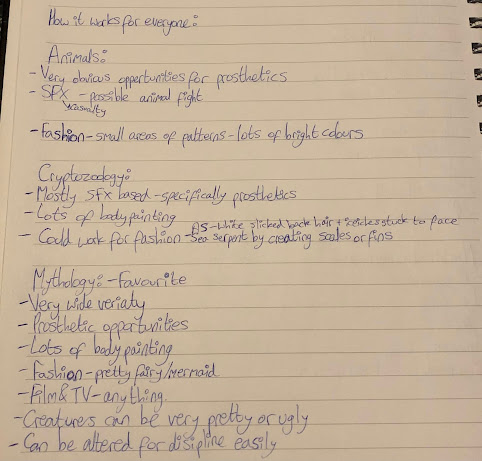 How it works for everyone:
Animals:
- Very obvious opportunities for prosthetics
- SFX - possible animal fight
casualty
- Fashion - small areas of patterns - lots of bright colours
Cryptozoology:
- Mostly SFX based - specifically prosthetics
- Lots of bodypainting
AS - white slicked back hair + icicles stuck to face
- Could work for fashion - Sea serpent by creating scales or fins
Mythology: - Favourite
- Very wide veriaty
- Prosthetic opportunities
- Lots of bodypainting
- Fashion - pretty fairy/mermaid
- Film & TV - anything
- Creatures can be very pretty or ugly
- Can be altered for disipline easily